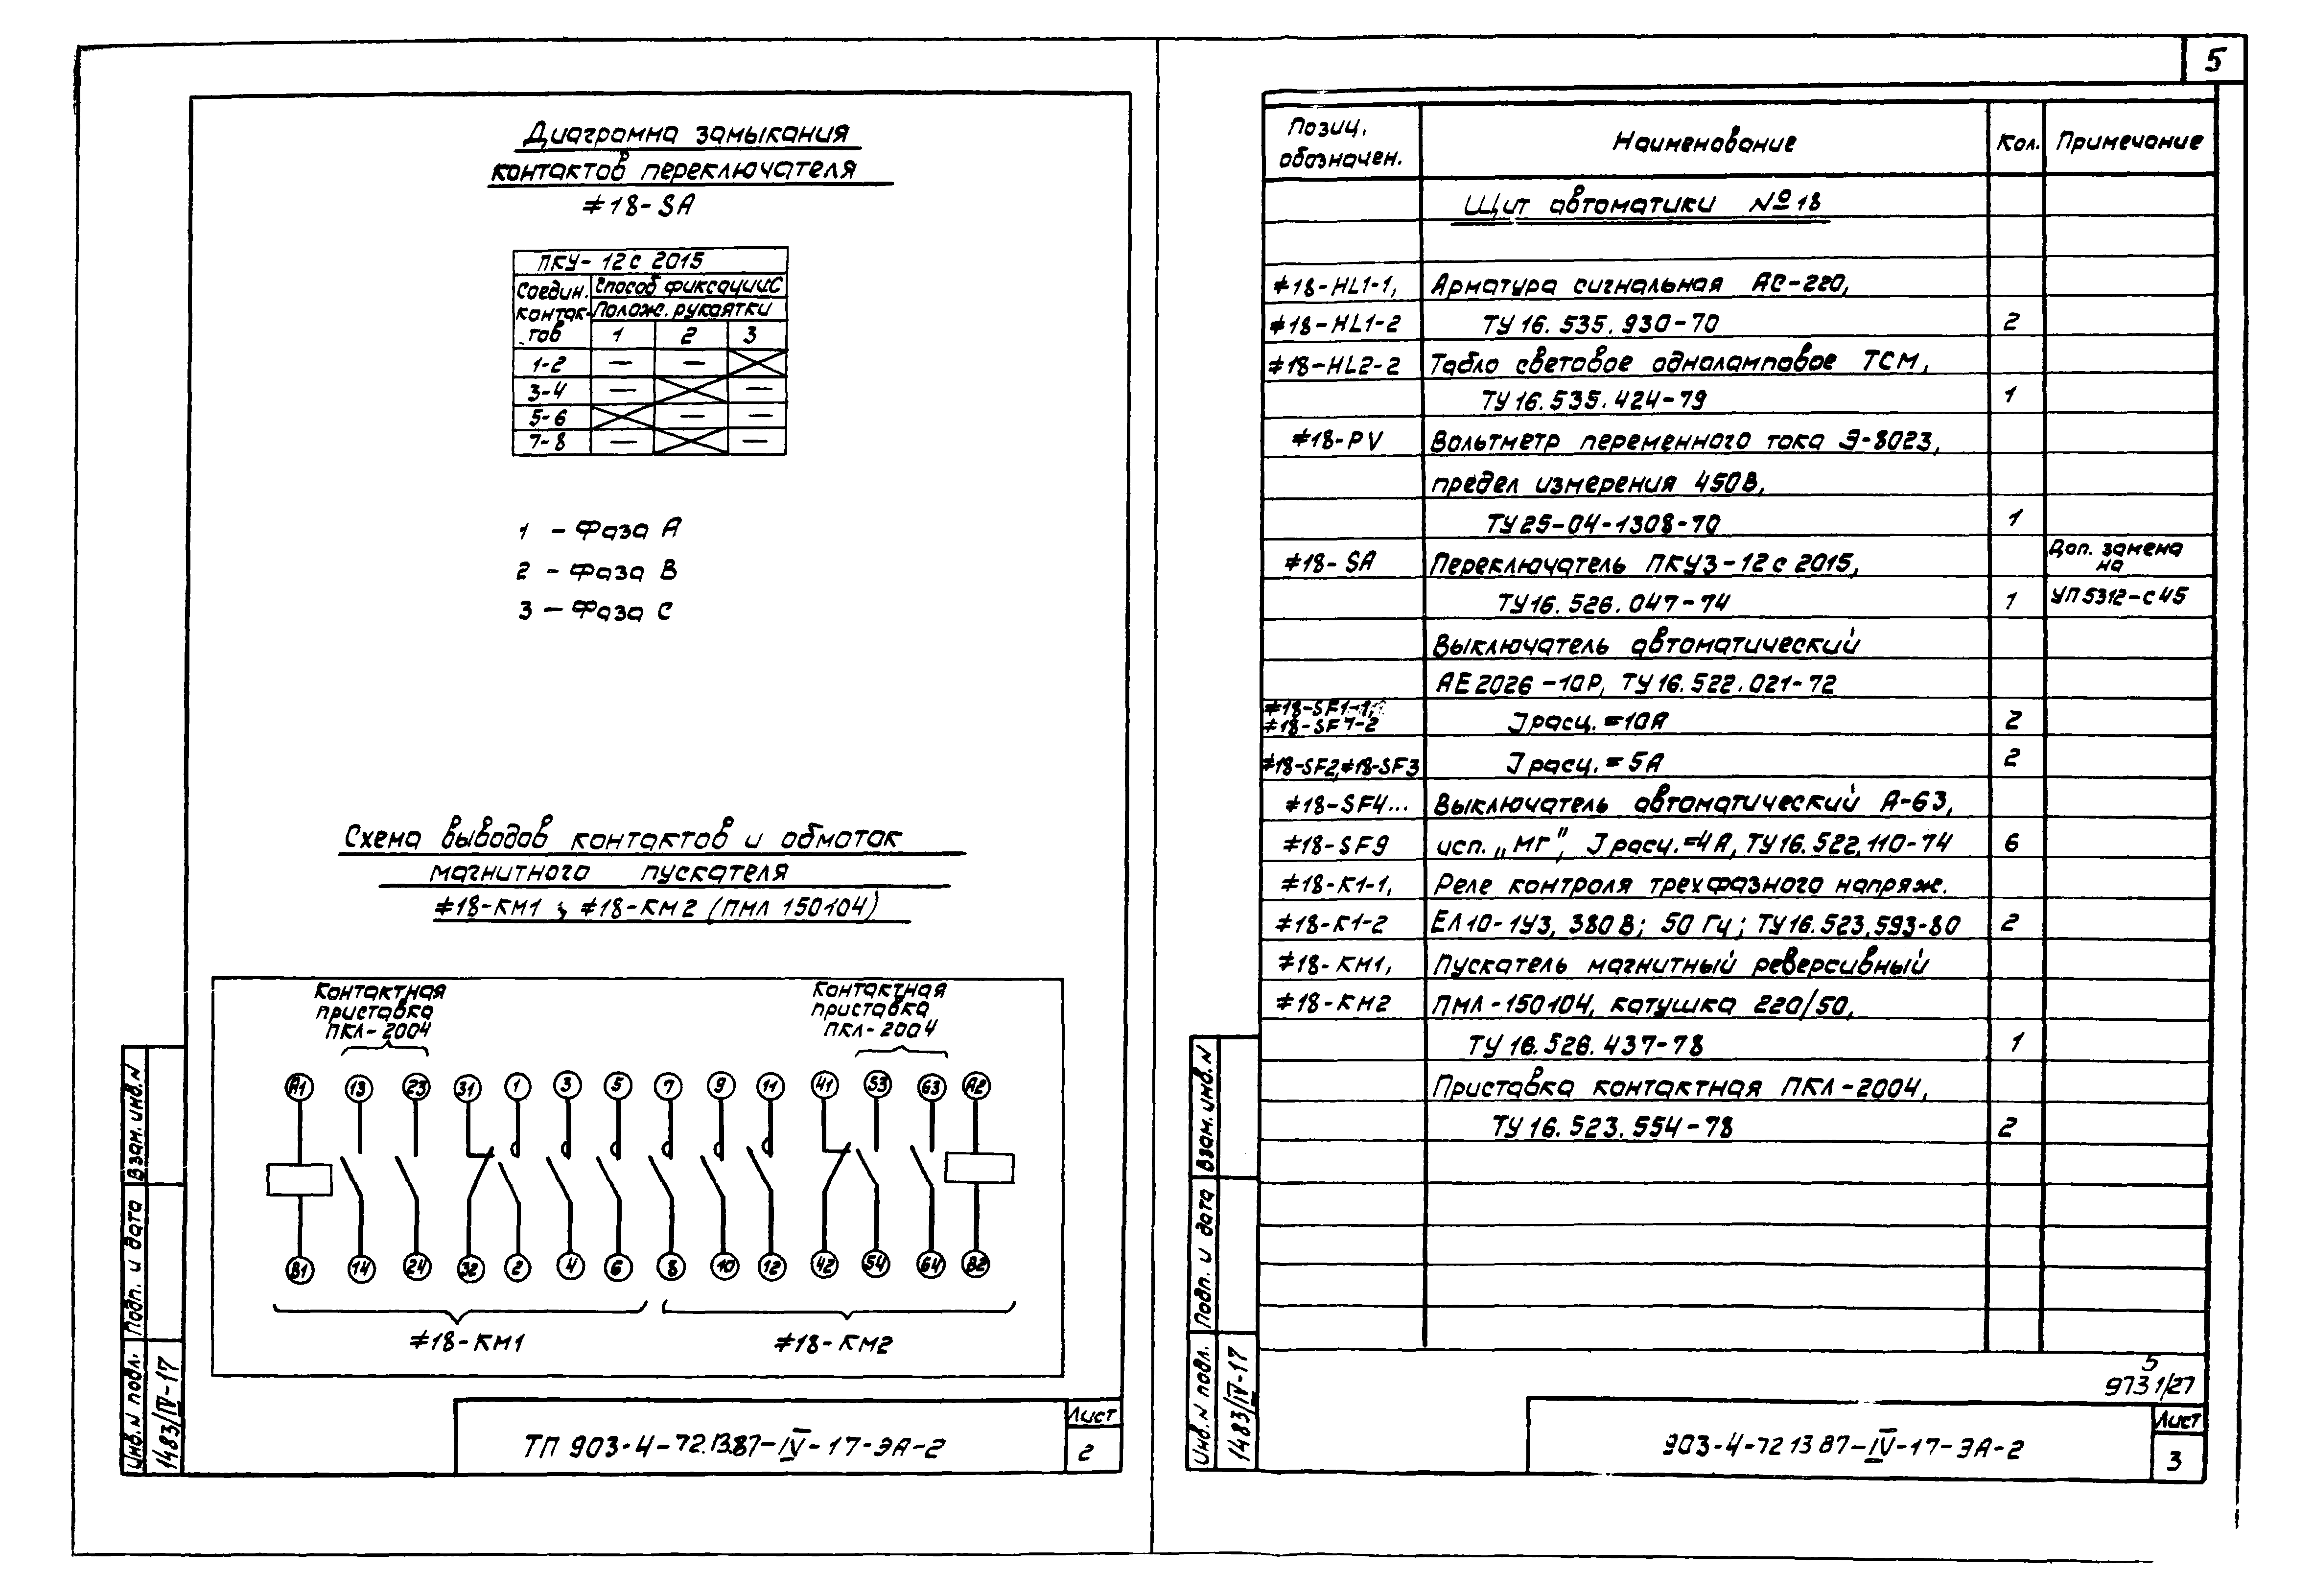 5
Диаграмма замыкания
контактов переключателя
≠18-SA
ПКУ-12с 2015
Соедин. Способ фиксации:С
контак- Полож. рукоятки
тов 1 2 3
1-2 — —
3-4 — —
5-6 — —
7-8 — —
1 - Фаза А
2 - Фаза В
3 - Фаза С
Схема выводов контактов и обмоток
магнитного пускателя
≠18-КМ1 ; ≠18-КМ2 (ПМЛ 150104)
Контактная
приставка
ПКЛ-2004
Контактная
приставка
ПКЛ-2004
А1 13 23 31 1 3 5 7 9 11 41 53 63 А2
В1 14 24 32 2 4 6 8 10 12 42 54 64 В2
≠18-КМ1 ≠18-КМ2
ТП 903-4-72.13.87-IV-17-ЭА-2
Лист
2
Взам. инв. N
Подп. и дата
Инв. N подл.
1483/IV-17
Позиц. обозначен. Наименование Кол. Примечание
Щит автоматики №18
≠18-HL1-1, Арматура сигнальная АС-220,
≠18-HL1-2 ТУ 16.535.930-70 2
≠18-HL2-2 Табло световое одноламповое ТСМ,
ТУ 16.535.424-79 1
≠18-PV Вольтметр переменного тока Э-8023,
предел измерения 450В,
ТУ 25-04-1308-70 1
≠18-SA Переключатель ПКУ3-12с 2015, Доп. замена на
ТУ16.526.047-74 1 УП5312-с45
Выключатель автоматический
АЕ2026-10Р, ТУ16.522.021-72
≠18-SF1-1,
≠18-SF1-2 Jрасц.=10А 2
≠18-SF2,≠18-SF3 Jрасц.=5А 2
≠18-SF4... Выключатель автоматический А-63,
≠18-SF9 исп. „МГ", Jрасц.=4А, ТУ16.522.110-74 6
≠18-К1-1, Реле контроля трехфазного напряж.
≠18-К1-2 ЕЛ10-1У3, 380В; 50 Гц; ТУ16.523.593-80 2
≠18-КМ1, Пускатель магнитный реверсивный
≠18-КМ2 ПМЛ-150104, катушка 220/50,
ТУ 16.526.437-78 1
Приставка контактная ПКЛ-2004,
ТУ16.523.554-78 2
5
9731/27
903-4-72 13 87-IV-17-ЭА-2
Лист
3
Взам. инв. N
Подп. и дата
Инв. N подл.
1483/IV-17